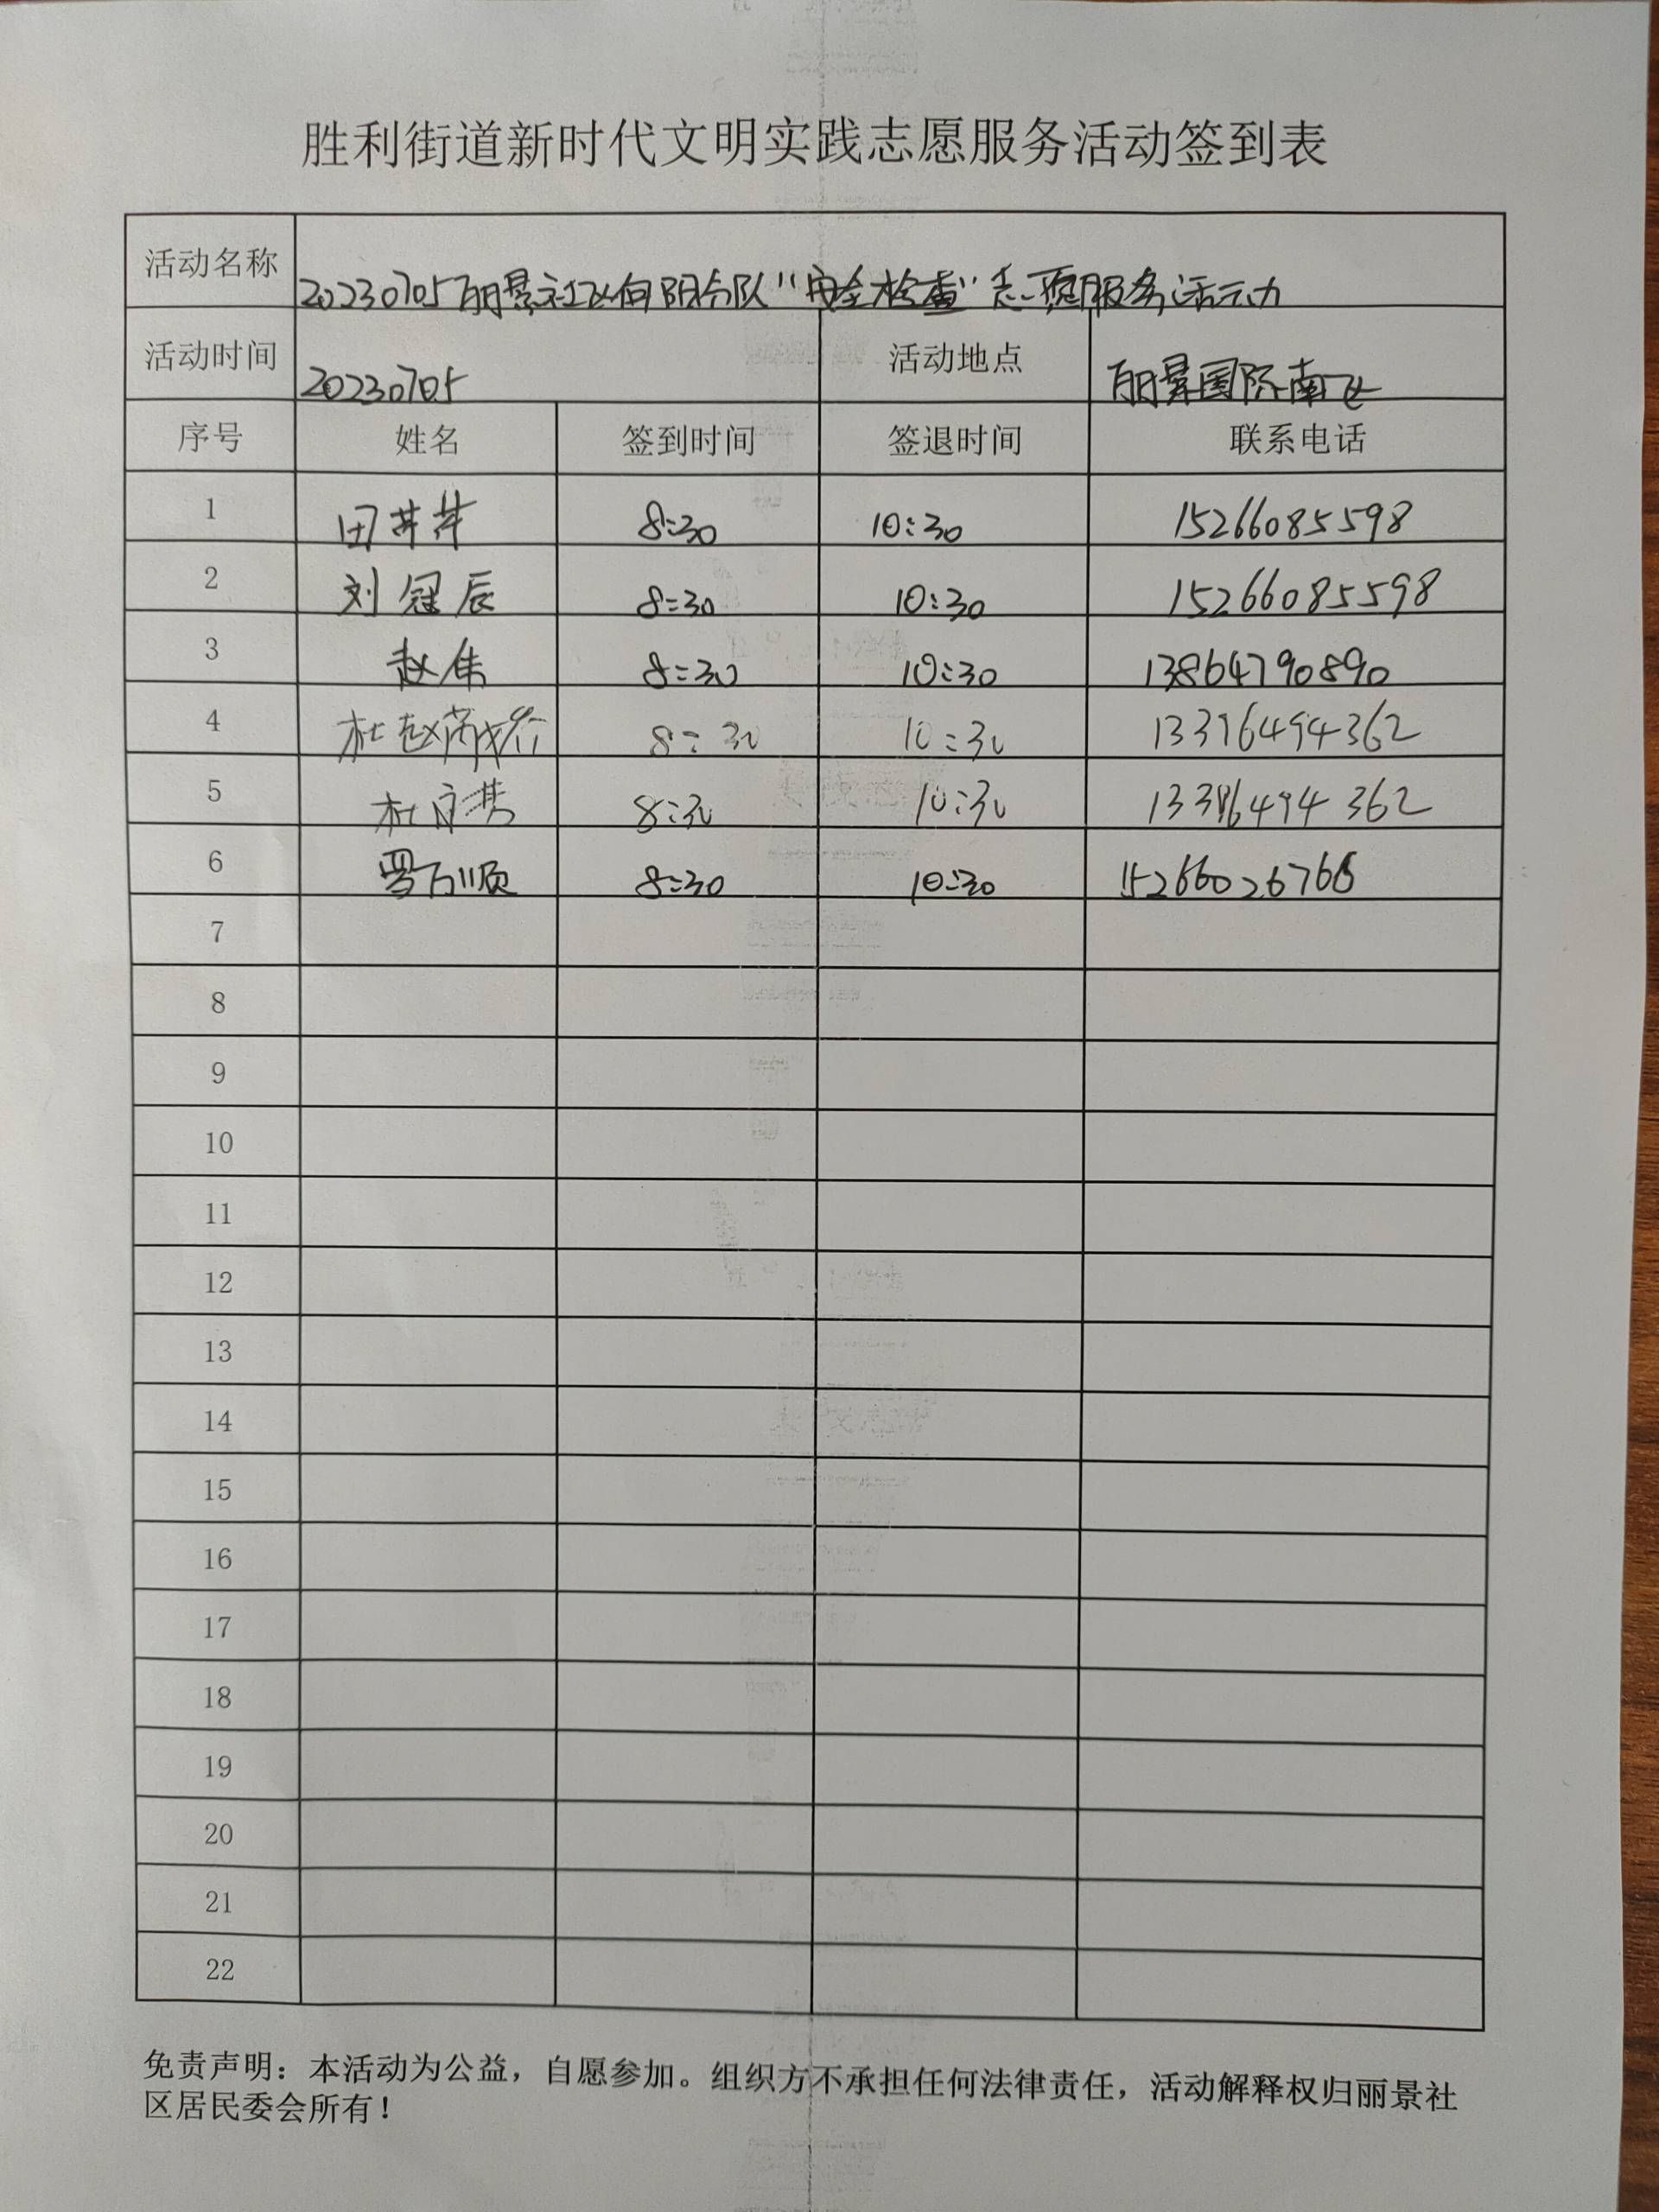 胜利街道新时代文明实践志愿服务活动签到表
活动名称 20230705丽景社区向阳分队“安全检查”志愿服务活动
活动时间 20230705 活动地点 丽景国际南区
序号 姓名 签到时间 签退时间 联系电话
1 田井井 8:30 10:30 15266085598
2 刘冠辰 8:30 10:30 15266085598
3 赵伟 8:30 10:30 13864790890
4 杜赵 8:30 10:30 13396494362
5 杜 8:30 10:30 13396494362
6 罗万顺 8:30 10:30 15266026766
7
8
9
10
11
12
13
14
15
16
17
18
19
20
21
22
免责声明：本活动为公益，自愿参加。组织方不承担任何法律责任，活动解释权归丽景社
区居民委会所有！